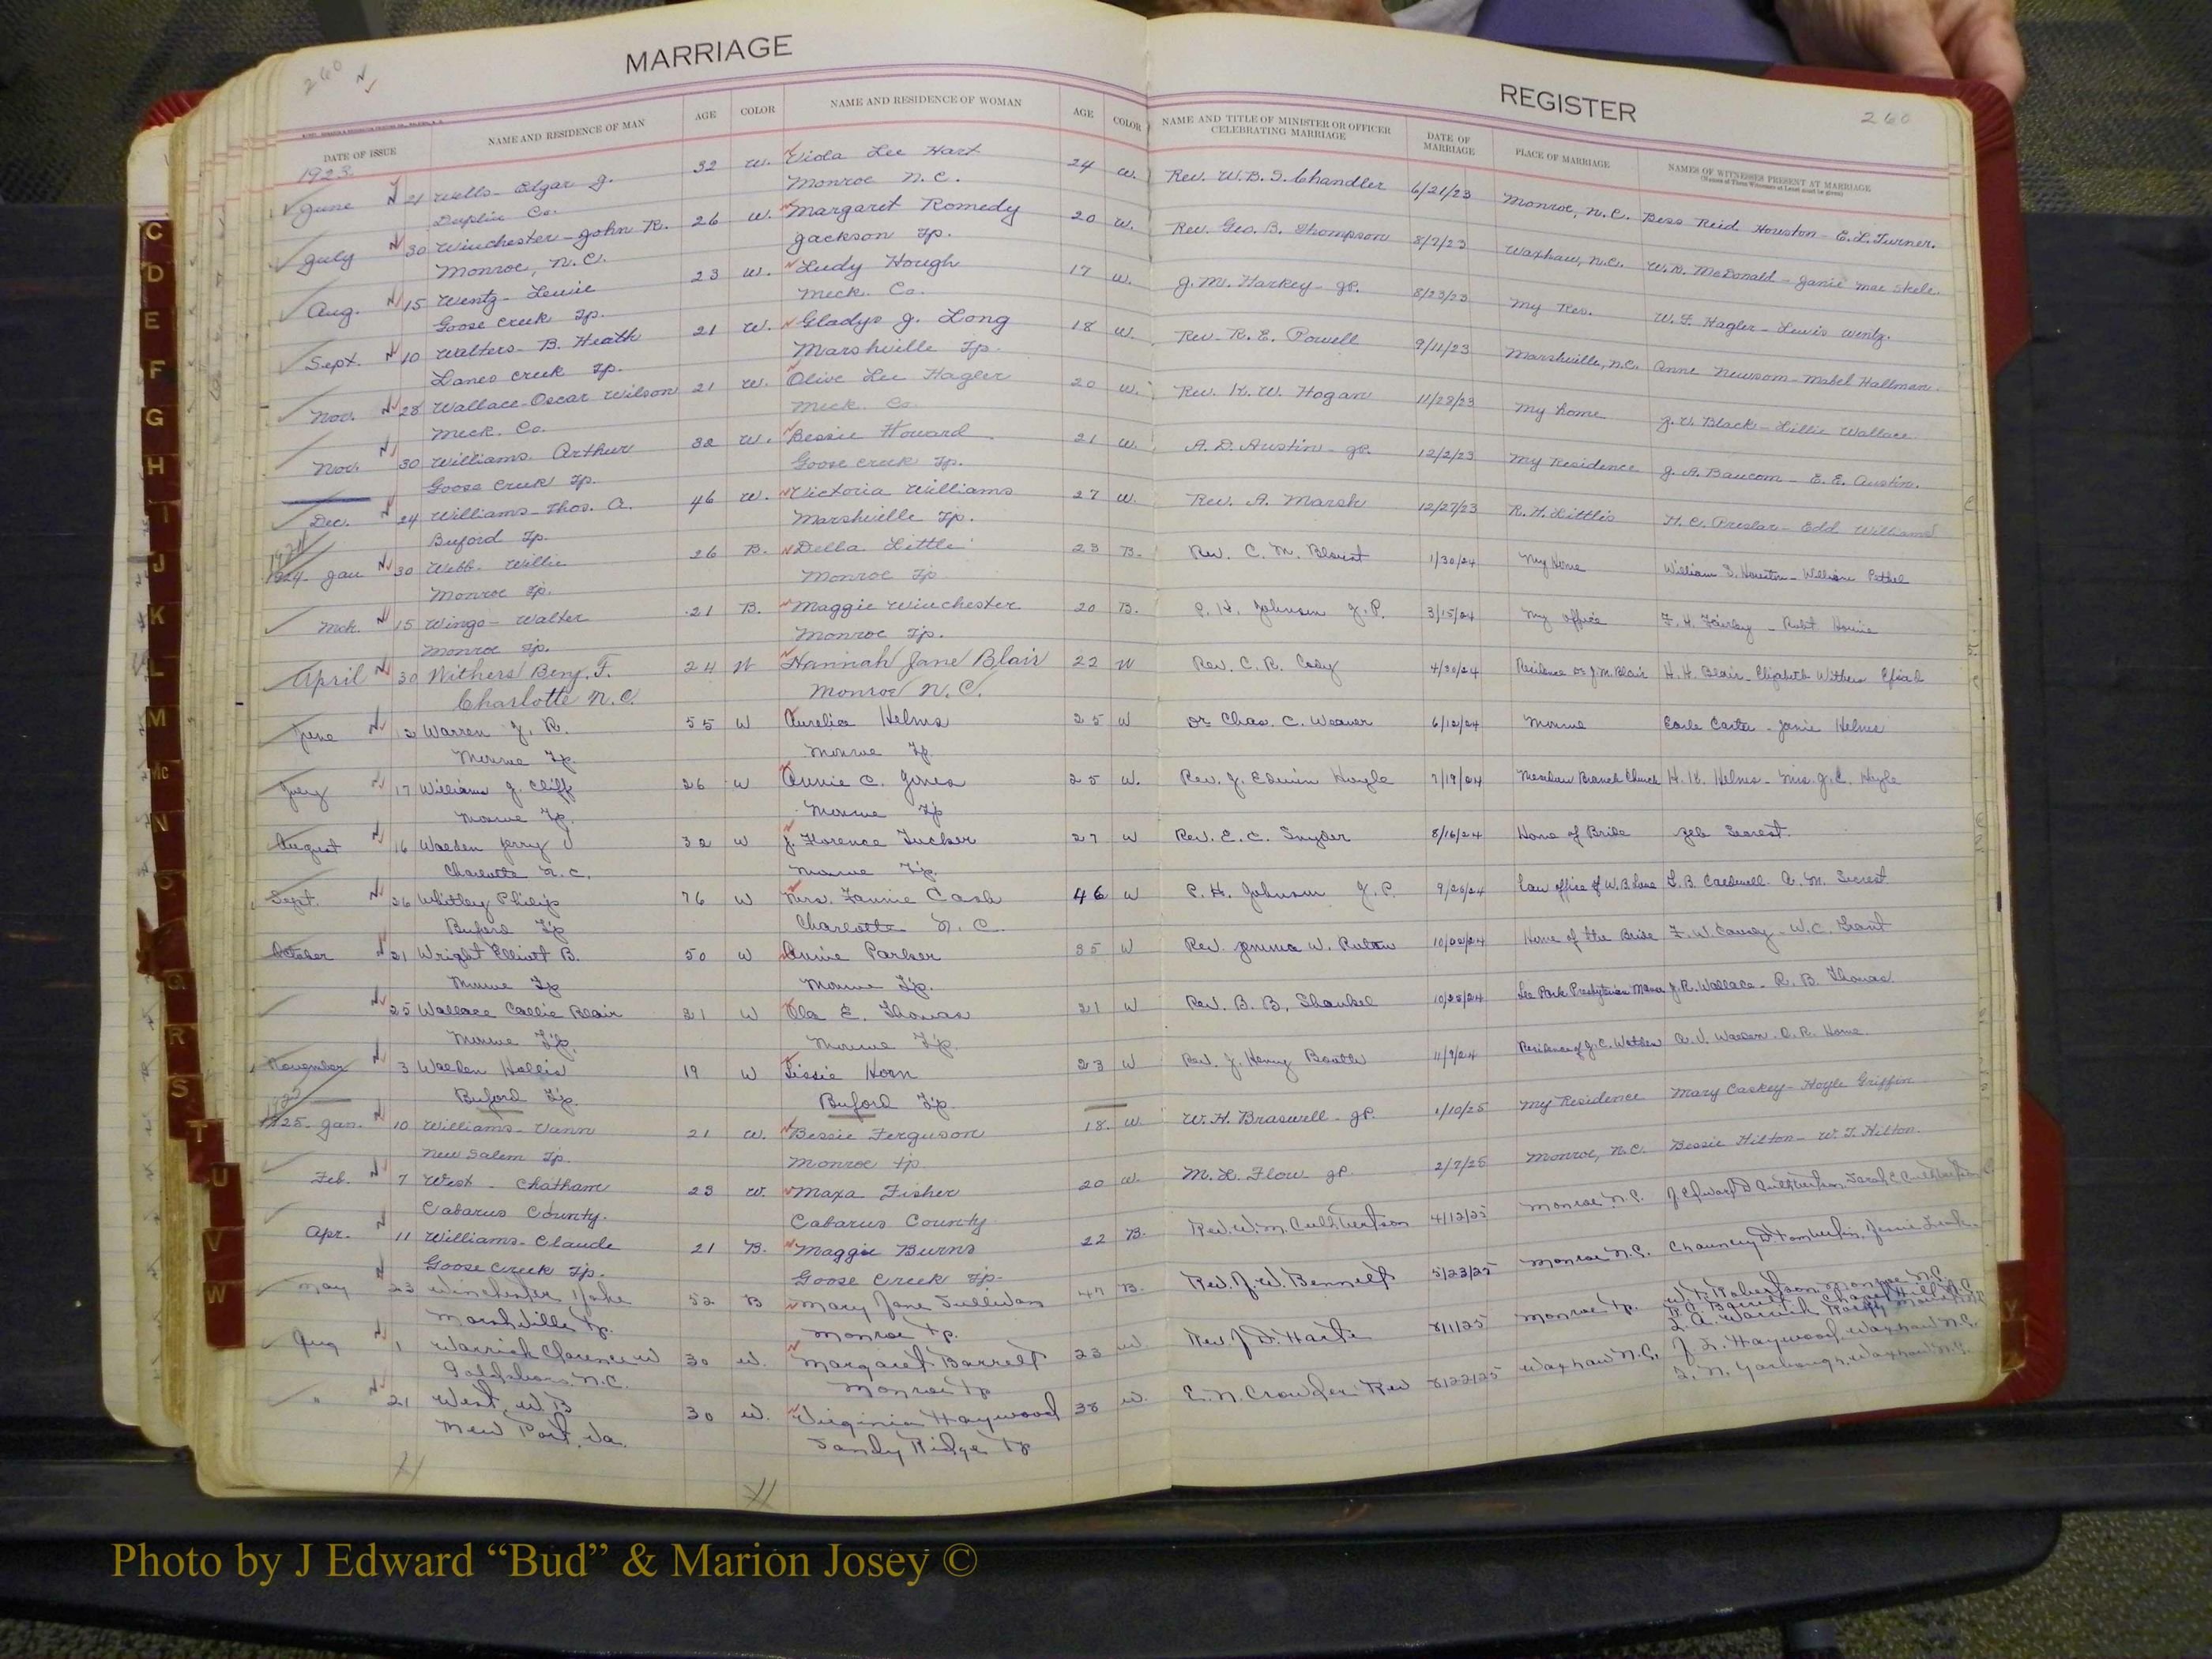 260
MARRIAGE
REGISTER
260
DATE OF ISSUE NAME AND RESIDENCE OF MAN AGE COLOR NAME AND RESIDENCE OF WOMAN AGE COLOR NAME AND TITLE OF MINISTER OR OFFICER CELEBRATING MARRIAGE DATE OF MARRIAGE PLACE OF MARRIAGE NAMES OF WITNESSES PRESENT AT MARRIAGE
(Names of Three Witnesses at Least must be given)
1923
June 21 Wells- Edgar J. 32 W. Viola Lee Hart 24 W. Rev. W.B.S. Chandler 6/21/23 Monroe, N.C. Bess Reid Houston - E.L. Turner.
Duplin Co. Monroe N.C.
July 30 Winchester- John R. 26 W. Margaret Romedy 20 W. Rev. Geo. B. Thompson 8/7/23 Waxhaw, N.C. W.D. McDonald - Janie Mae
Monroe, N.C. Jackson Tp.
Aug. 15 Wentz- Lewie 23 W. Ludy Hough 17 W. J.M. Harkey- JP. 8/23/23 My Res. W.F. Hagler- Lewis Wentz.
Goose Creek Tp. Meck. Co.
Sept. 10 Walters- B. Heath 21 W. Gladys J. Long 18 W. Rev. R. E. Powell 9/11/23 Marshville, N.C. Anne Newsom- Mabel Hallman.
Lanes Creek Tp. Marshville Tp.
Nov. 28 Wallace- Oscar Wilson 21 W. Olive Lee Hagler 20 W. Rev. K. W. Hogan 11/28/23 My home J.V. Black- Lillie Wallace.
Meck. Co. Meck. Co.
Nov. 30 Williams. Arthur 32 W. Bessie Howard 21 W. A.D. Austin- JP. 12/2/23 My Residence J.A. Baucom- E.E. Austin.
Goose Creek Tp. Goose Creek Tp.
Dec. 24 Williams- Thos. A. 46 W. Victoria Williams 27 W. Rev. A. Marsh 12/27/23 R.H. Little's H.C. Preslar- Edd Williams
Buford Tp. Marshville Tp.
1924
1924. Jan 30 Webb. Willie 26 B. Della Little 23 B. Rev. C. M. 1/30/24 My Home William S. Houston- William Pethel
Monroe Tp. Monroe Tp
Mch. 15 Wingo- Walter 21 B. Maggie Winchester 20 B. P. H. Johnson J.P. 3/15/24 My office F. H. Fairley - Robt Howie
Monroe Tp. Monroe Tp.
April 30 Withers Benj. F. 24 W Hannah Jane Blair 22 W Rev. C. R. 4/30/24 Residence of J.M. Blair H. H. Blair- Elizabeth Withers
Charlotte N.C. Monroe N.C.
June 12 Warren J. R. 55 W Aurelia Helms 25 W Dr Chas. C. Weaver 6/12/24 Monroe Earle Carter - Janie Helms
Monroe Tp. Monroe Tp.
July 17 Williams J. Cliff 26 W Annie C. Jones 25 W. Rev. J. Edwin Hoyle 7/19/24 Meadow Branch Church H. K. Helms- Mrs. J.E. Hoyle
Monroe Tp. Monroe Tp
August 16 Walden Jerry J 32 W J. Florence Tucker 27 W Rev. E. C. Snyder 8/16/24 Home of Bride Zeb Secrest.
Charlotte N.C. Monroe Tp.
Sept. 26 Whitley Philip 76 W Mrs. Fannie Cash 46 W P. H. Johnson J.P. 9/26/24 Law office of W.B. Love L.B. Caldwell. A. M. Secrest
Buford Tp Charlotte N. C.
October 21 Wright Elliott B. 50 W Annie Parker 35 W Rev. W. 10/22/24 Home of the Bride F. W. Causey- W.C. Grant
Monroe Tp Monroe Tp.
25 Wallace Callie Blair 21 W Ola E. Thomas 21 W Rev. B. B. Shankel 10/25/24 Lee Park Presbyterian Manse J.R. Wallace- R. B. Thomas
Monroe Tp. Monroe Tp.
November 3 Walden Hollis 19 W Lissie Horn 23 W Rev. J. Henry 11/9/24 Residence of J.C. A. V. Walden. D. R. Horne.
Buford Tp. Buford Tp.
1925
1925- Jan. 10 Williams- Vann 21 W. Bessie Ferguson 18. W. W. H. Braswell- JP. 1/10/25 My Residence Mary Caskey- Hoyle Griffin
New Salem Tp. Monroe tp.
Feb. 7 West - Chatham 23 W. Maxa Fisher 20 W. M. L. Flow JP 2/7/25 Monroe, N.C. Bessie Hilton- W. T. Hilton.
Cabarus County. Cabarus County
Apr. 11 Williams- Claude 21 B. Maggie Burns 22 B. Rev. W. M. Cuthbertson 4/12/25 Monroe N.C. J. Edward D Cuthbertson, Sarah C Cuthbertson
Goose Creek Tp. Goose Creek Tp.
May 23 Winchester, Jake 52 B Mary Jane Sullivan 47 B. Rev. J. W. Bennett 5/23/25 Monroe N.C. Chauncey D Tomberlin, Jennie
Marshville tp. Monroe tp.
Aug 1 Warrick Clarence W 30 W. Margaret Barrett 23 W. Rev J. D. 8/1/25 Monroe tp. W. R. Robertson Monroe N.C.
Goldsboro, N.C. Monroe tp Barrett Chapel Hill N.C.
L. A. Warrick Rocky Mount N.C.
" 21 West, W. B 30 W. Virginia Haywood 38 W. E. N. Crowder Rev 8/22/25 Waxhaw N.C. J. L. Haywood, Waxhaw N.C.
New Port, Va. Sandy Ridge tp Yarbrough, Waxhaw N.C.
C
D
E
F
G
H
I
J
K
L
M
Mc
N
O
Q
R
S
T
U
V
W
Photo by J Edward “Bud” & Marion Josey ©